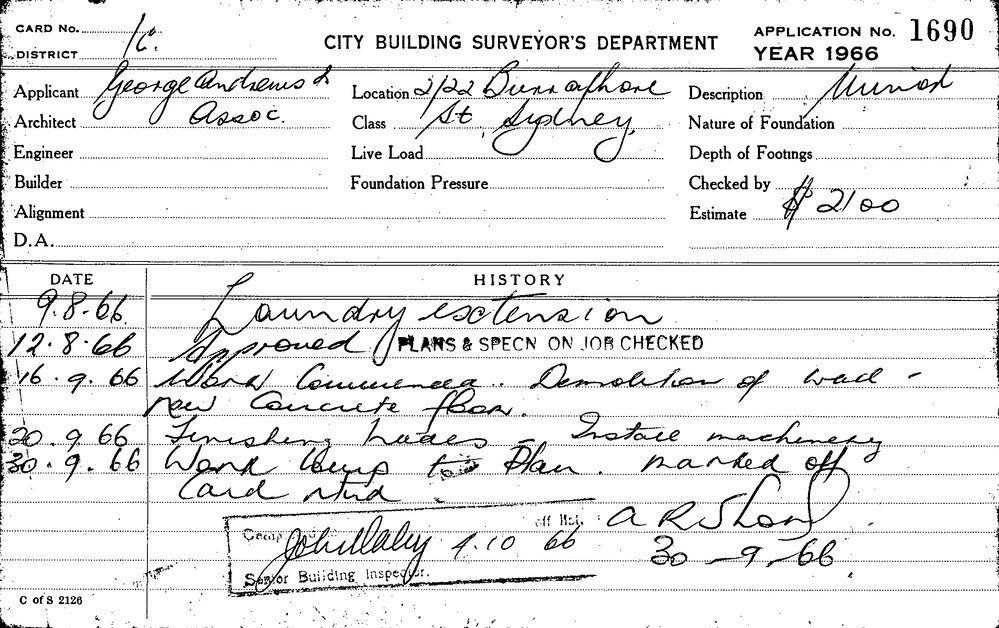 CARD No.
DISTRICT 1/C.
CITY BUILDING SURVEYOR'S DEPARTMENT
APPLICATION No. 1690
YEAR 1966
Applicant George Andrews &
Architect Assoc.
Engineer
Builder
Alignment
D.A.
Location 2/22
Class St, Sydney,
Live Load
Foundation Pressure
Description Minor
Nature of Foundation
Depth of Footings
Checked by
Estimate $ 2100
DATE HISTORY
9.8.66 Laundry extension
12.8.66 Approved PLANS & SPECN ON JOB CHECKED
16.9.66 Work Commenced.. Demolition of wall -
new Concrete floor.
20.9.66 Finishing trades - Install machinery
30.9.66 Work Comp to Plan. marked off
Card rtnd
A R
30-9-66.
off list.
4.10 66
Senior Building Inspector.
C of S 2126